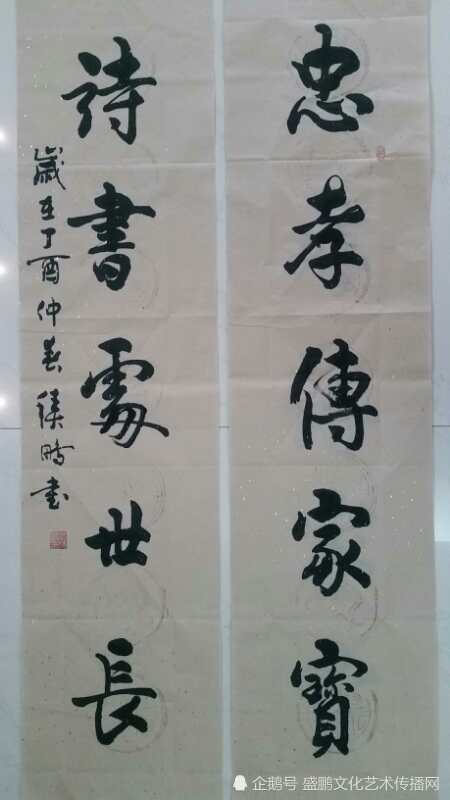 忠孝傳家寶
詩書處世長
歲在丁酉仲春書
企鹅号 盛鹏文化艺术传播网